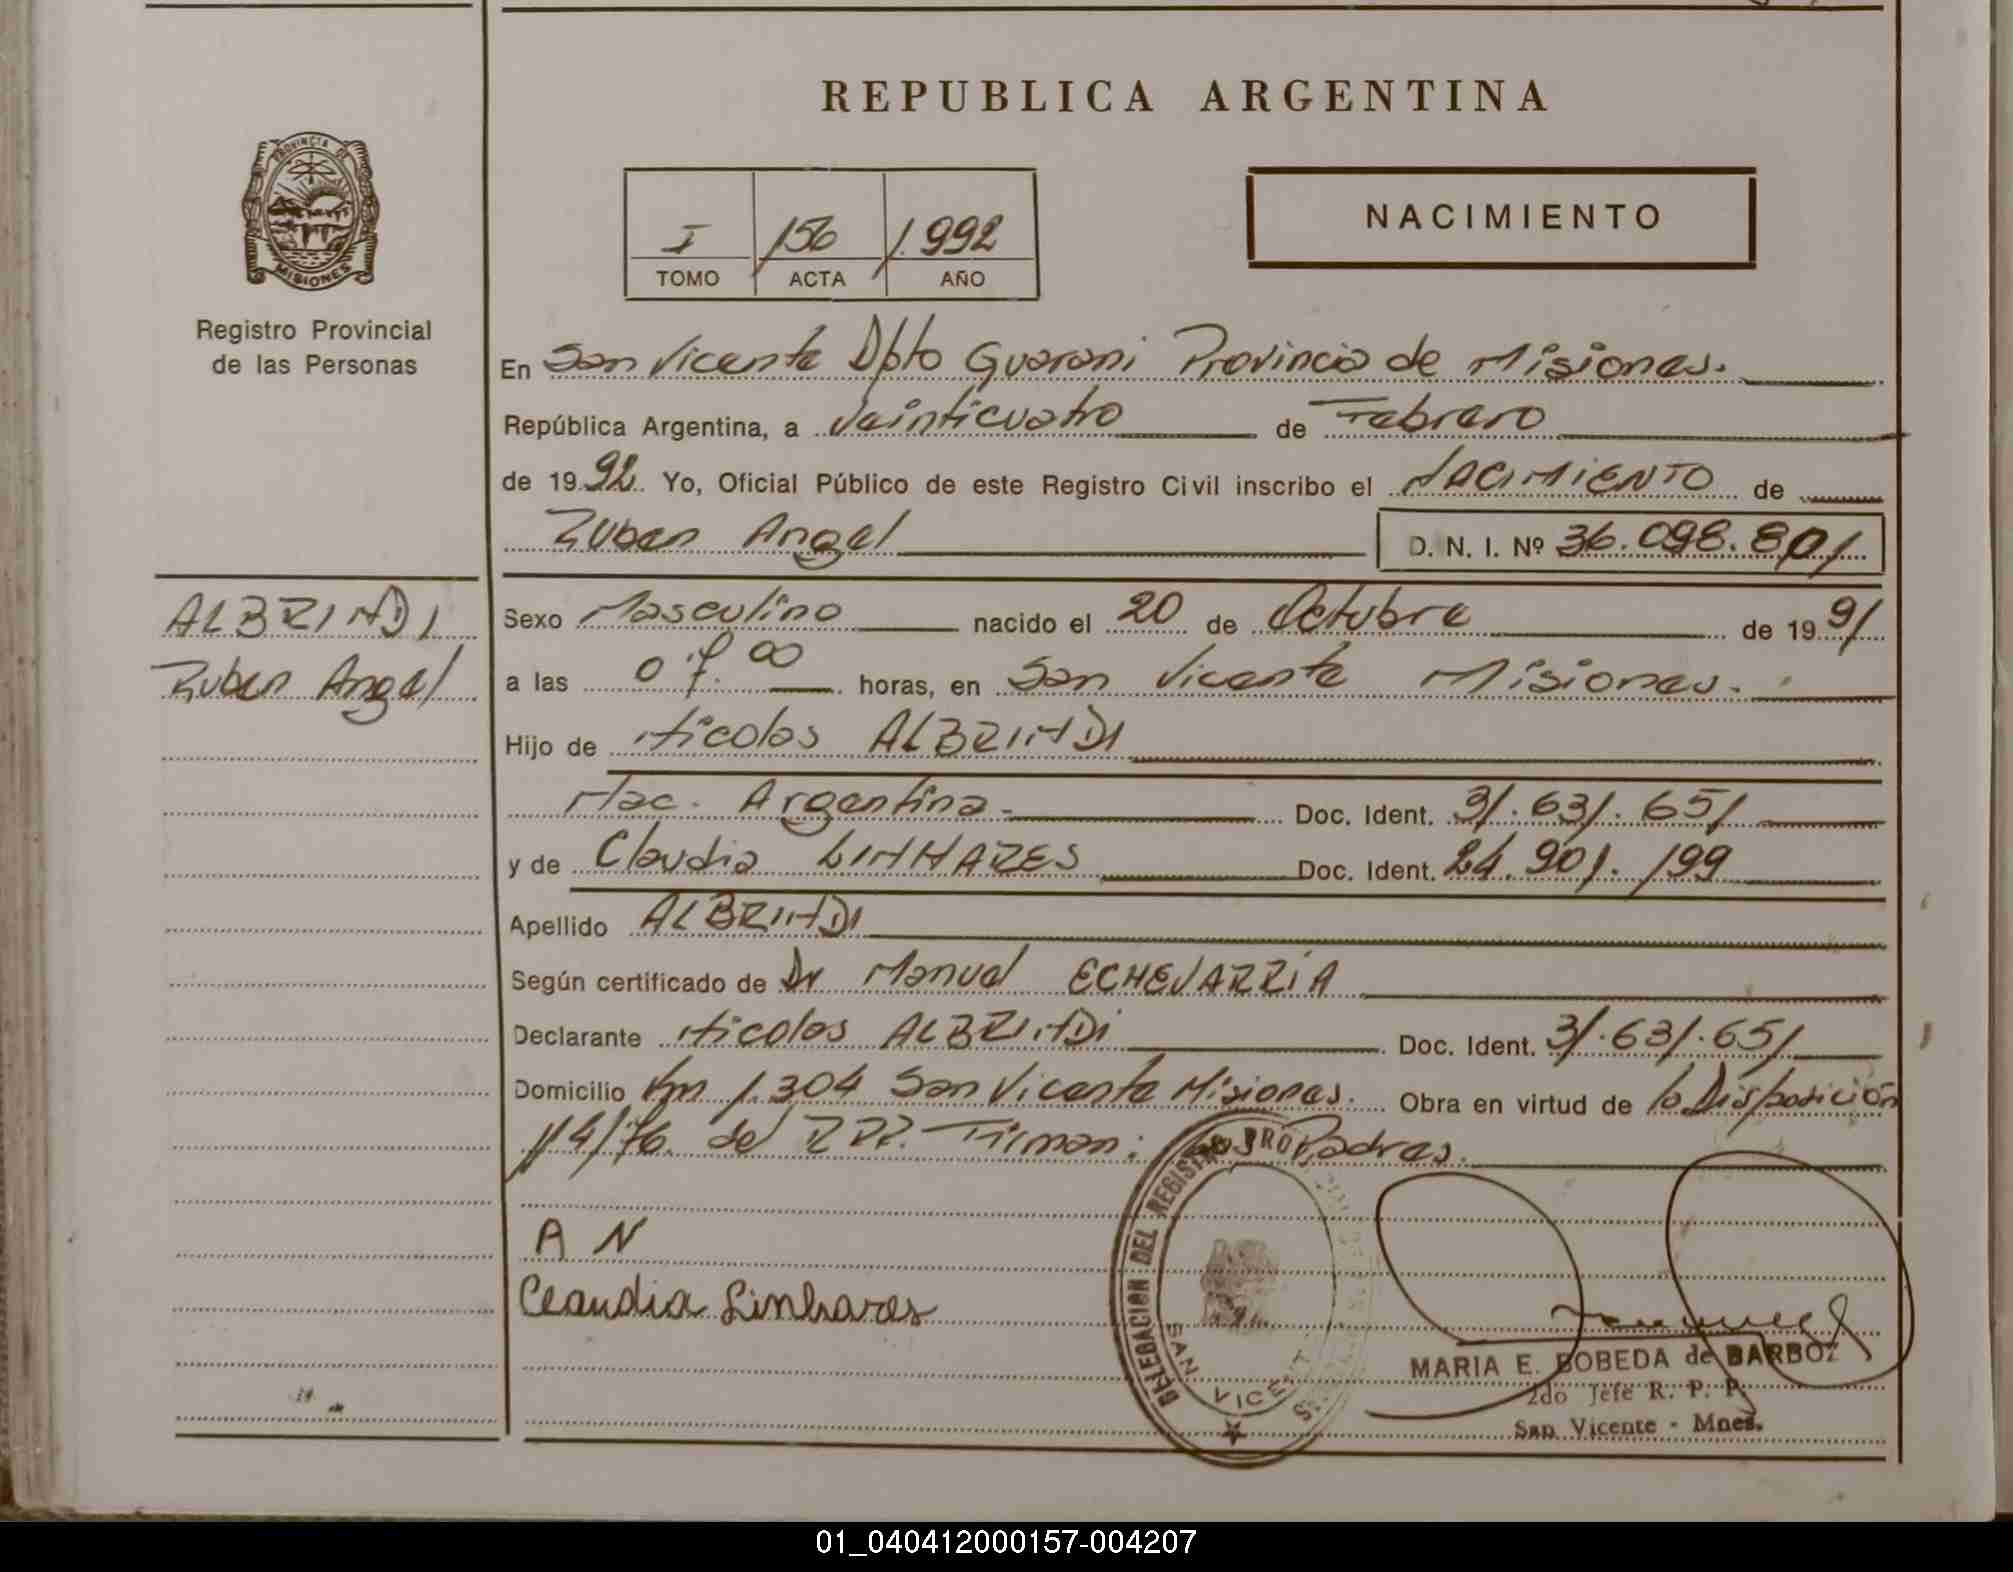 REPUBLICA ARGENTINA
PROVINCIA DE
MISIONES
Registro Provincial
de las Personas
I 156 1.992
TOMO ACTA AÑO
NACIMIENTO
En San Vicente Dpto Guarani Provincia de Misiones.
República Argentina, a Veinticuatro de Febrero
de 1992. Yo, Oficial Público de este Registro Civil inscribo el NACIMIENTO de
Ruben Angel D. N. I. Nº 36.098.801
ALBRINDI
Ruben Angel
Sexo Masculino nacido el 20 de Octubre de 1991
a las 07.00 horas, en San Vicente Misiones.
Hijo de Nicolas ALBRINDI
Nac. Argentina. Doc. Ident. 31.631.651
y de Claudia LINHARES Doc. Ident. 24.901.199
Apellido ALBRINDI
Según certificado de Dr Manuel ECHEVARRIA
Declarante Nicolas ALBRINDI Doc. Ident. 31.631.651
Domicilio Km 1.304 San Vicente Misiones. Obra en virtud de la Disposición
114/76. del RPP. Firman: los Padres.
A N
Claudia Linhares
DELEGACION DEL REGISTRO PRO
SAN VICENT
MARIA E. BOBEDA de BARBOZ
2do Jefe R. P. P.
San Vicente - Mnes.
01_040412000157-004207